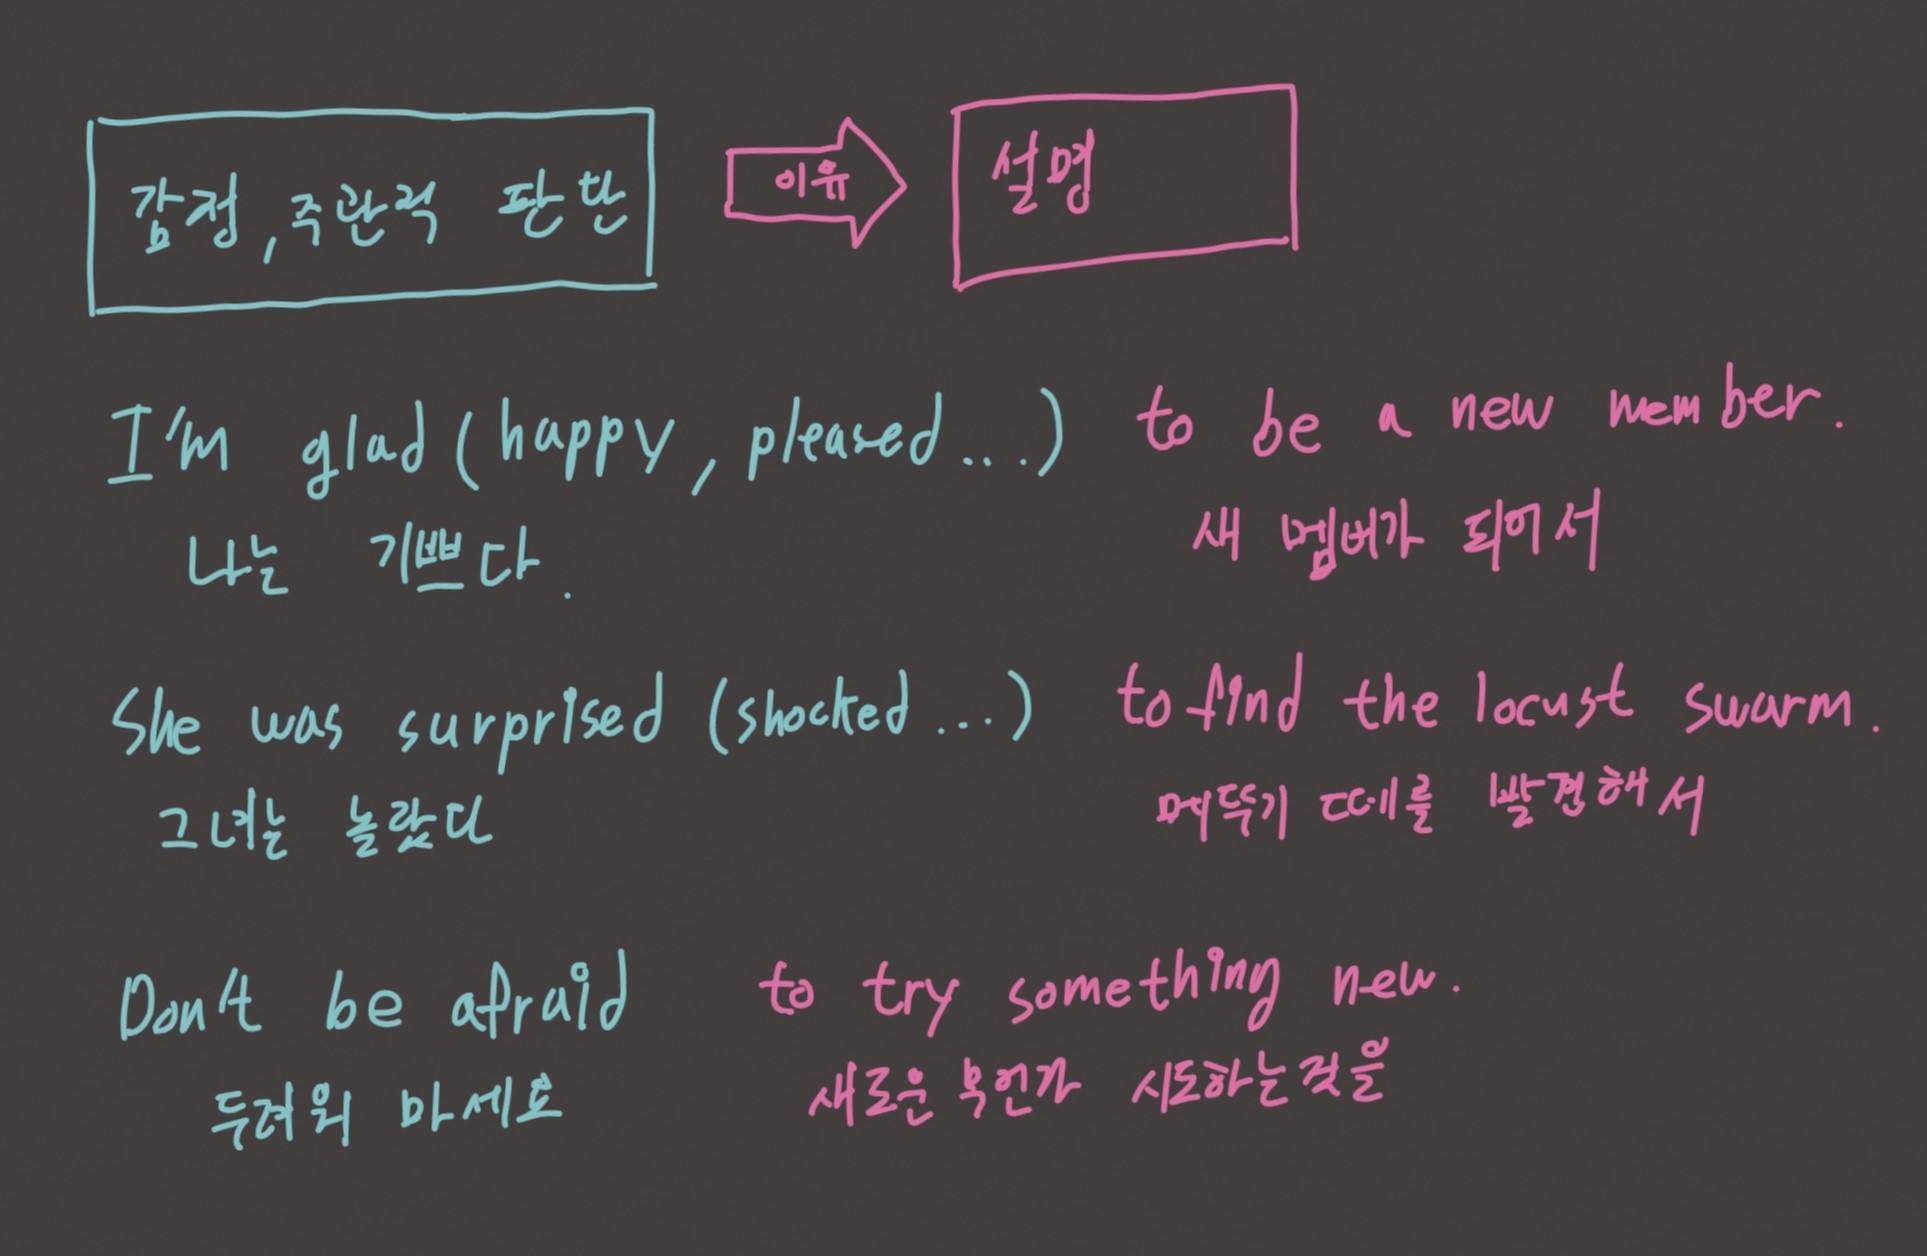 감정, 주관적 판단 이유 설명
I'm glad (happy, pleased...) to be a new member.
나는 기쁘다. 새 멤버가 되어서
She was surprised (shocked ...) to find the locust swarm.
그녀는 놀랐다 메뚜기 떼를 발견해서
Don't be afraid to try something new.
두려워 마세요 새로운 무언가 시도하는것을